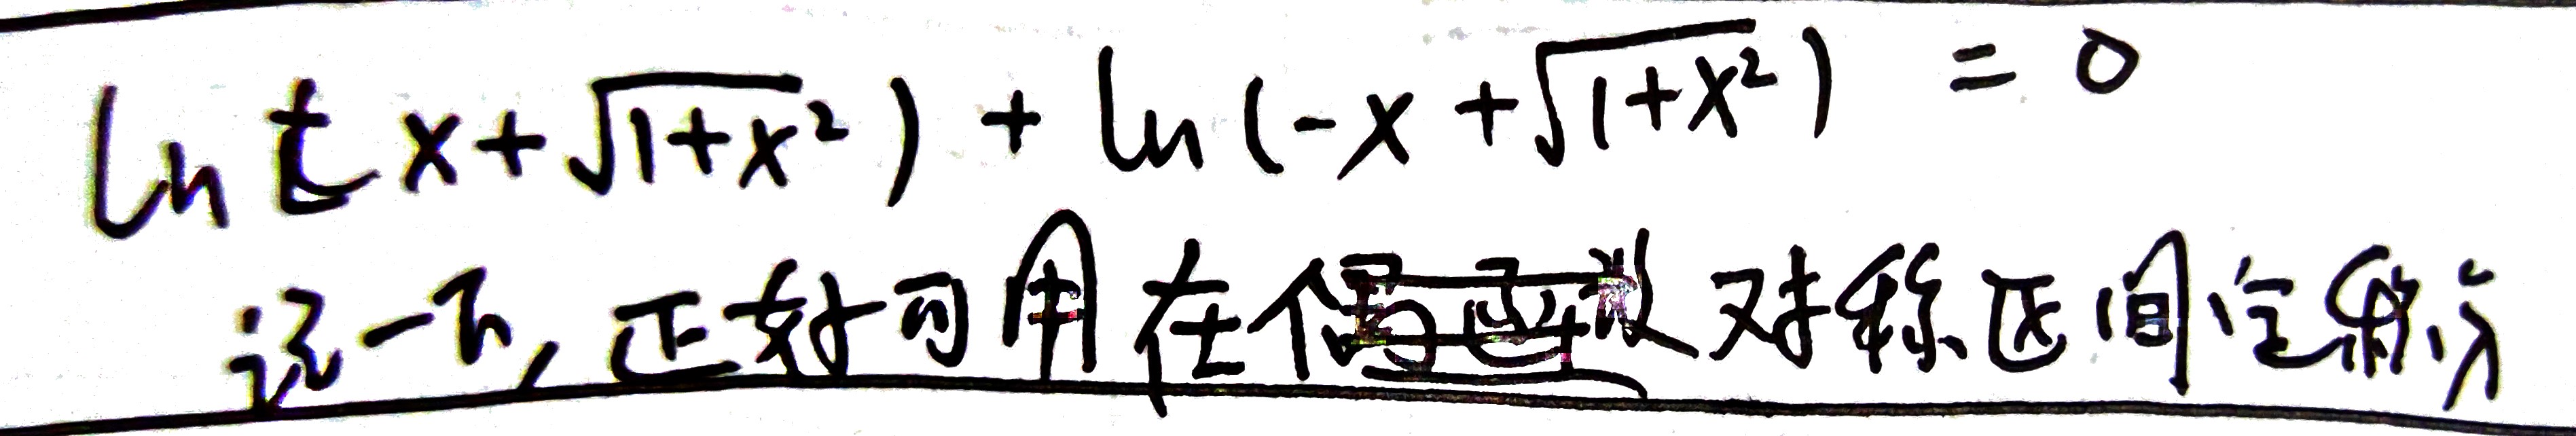 ln(x+√(1+x²)) + ln(-x+√(1+x²)) = 0
记一下,正好可用在对称区间定积分